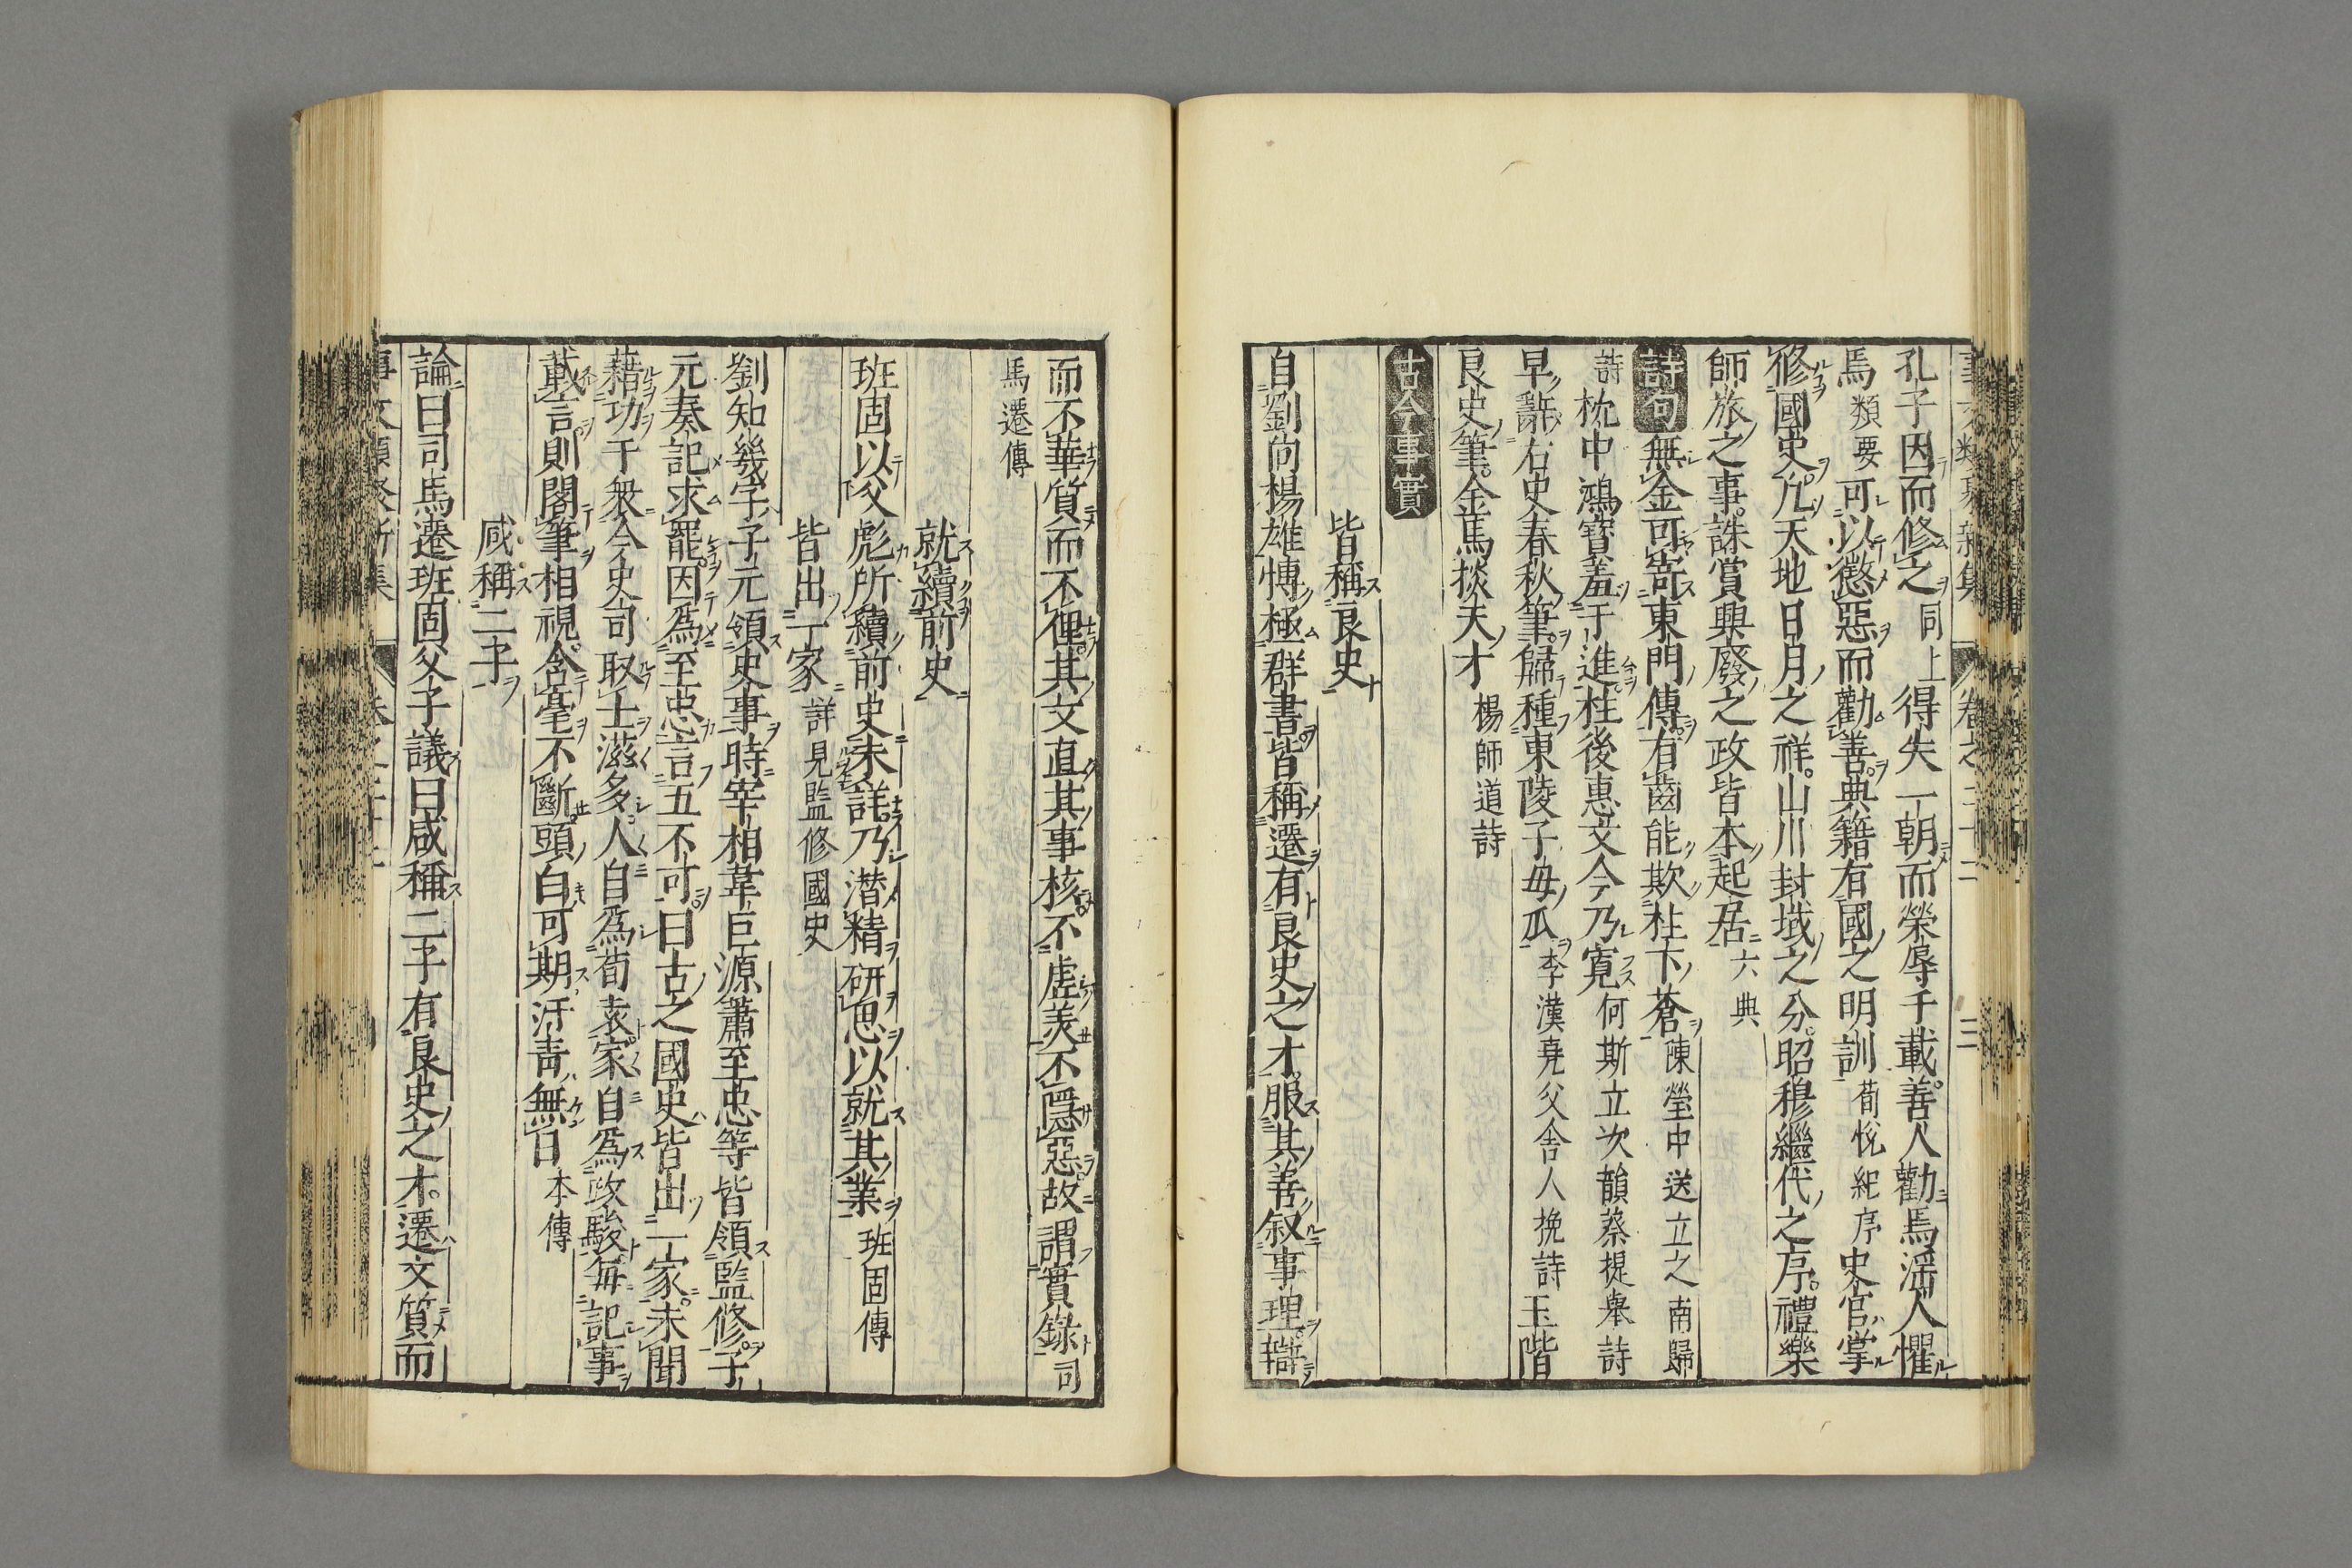 孔子因而修之同上得失一朝而榮辱千載善人勸焉淫人懼
焉類要可以懲惡而勸善典籍有國之明訓荀悅紀序史官掌
修國史凡天地日月之祥山川封域之分昭穆繼代之序禮樂
師旅之事誅賞興廢之政皆本起居六典
詩句無金可寄東門傳有齒能欺柱下蒼陳瑩中送立之南歸
詩枕中鴻寶羞于進柱後惠文今乃寬何斯立次韻蔡提舉詩
早辭右史春秋筆歸種東陵子母瓜李漢堯父舍人挽詩玉階
良史筆金馬掞天才楊師道詩
古今事實
皆稱良史
自劉向楊雄博極群書皆稱遷有良史之才服其善叙事理辯
而不華質而不俚其文直其事核不虛美不隱惡故謂實錄司
馬遷傳
就續前史
班固以父彪所續前史未詳乃潜精研思以就其業班固傳
皆出一家詳見監修國史
劉知幾字子元領史事時宰相韋巨源蕭至忠等皆領監修子
元奏記求罷因為至忠言五不可曰古之國史皆出一家未聞
藉功于衆今史司取士滋多人自爲荀袁家自爲政駿每記事
載言則閣筆相視含毫不斷頭白可期汗青無日本傳
咸稱二子
論曰司馬遷班固父子議曰咸稱二子有良史之才遷文質而